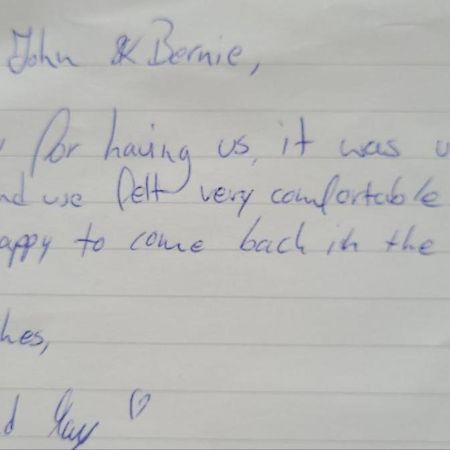 John & Bernie,
for having us, it was
nd we felt very comfortable
appy to come back in the
hes,
d